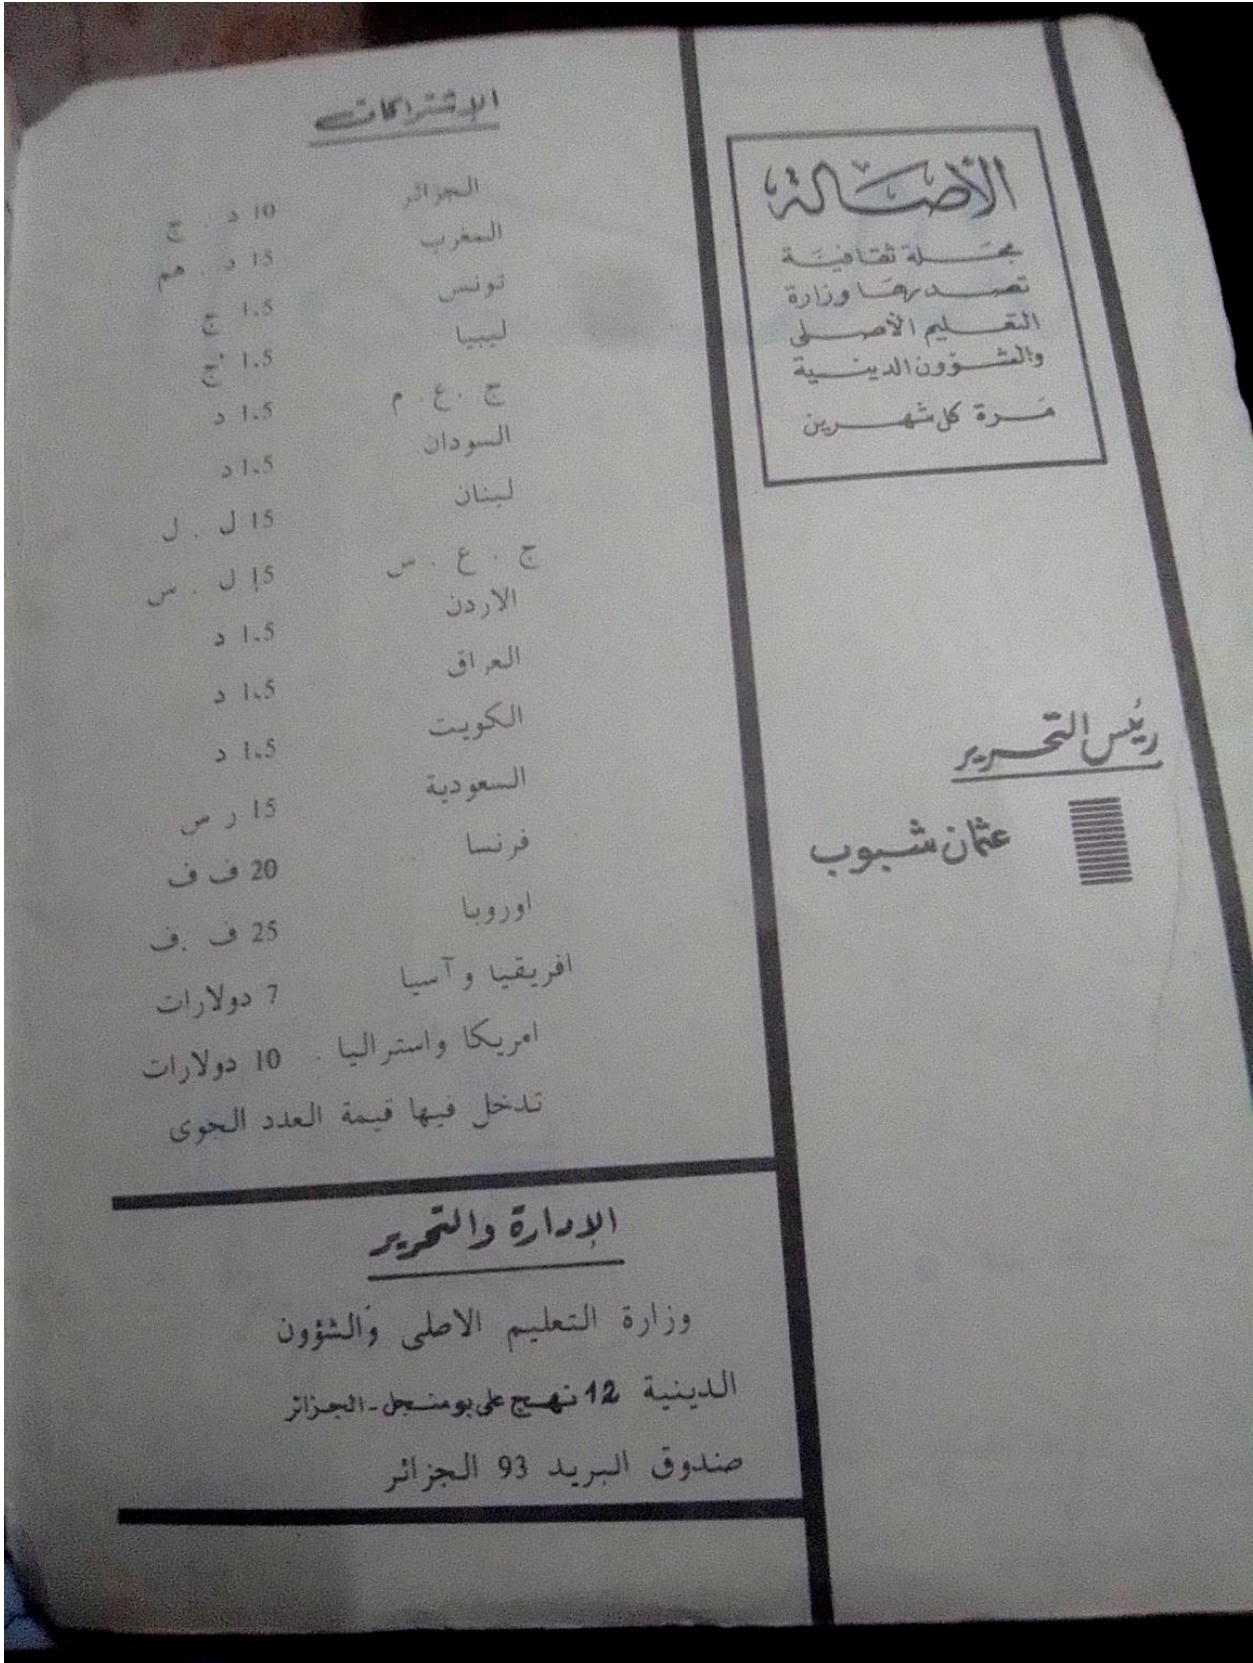 الأصالة
مجلة ثقافية
تصدرها وزارة
التعليم الأصلى
والشؤون الدينية
مرة كل شهرين
رئيس التحرير
عثمان شبوب
الإشتراكات
الجزائر 10 د . ج
المغرب 15 د . هم
تونس 1.5 ج
ليبيا 1.5 ج
ج . ع . م 1.5 د
السودان 1.5 د
لبنان 15 ل . ل
ج . ع . س 15 ل . س
الاردن 1.5 د
العراق 1.5 د
الكويت 1.5 د
السعودية 15 ر س
فرنسا 20 ف ف
اوروبا 25 ف .ف
افريقيا وآسيا 7 دولارات
امريكا واستراليا . 10 دولارات
تدخل فيها قيمة العدد الجوى
الإدارة والتحرير
وزارة التعليم الاصلى والشؤون
الدينية 12 نهج على بومنجل - الجزائر
صندوق البريد 93 الجزائر